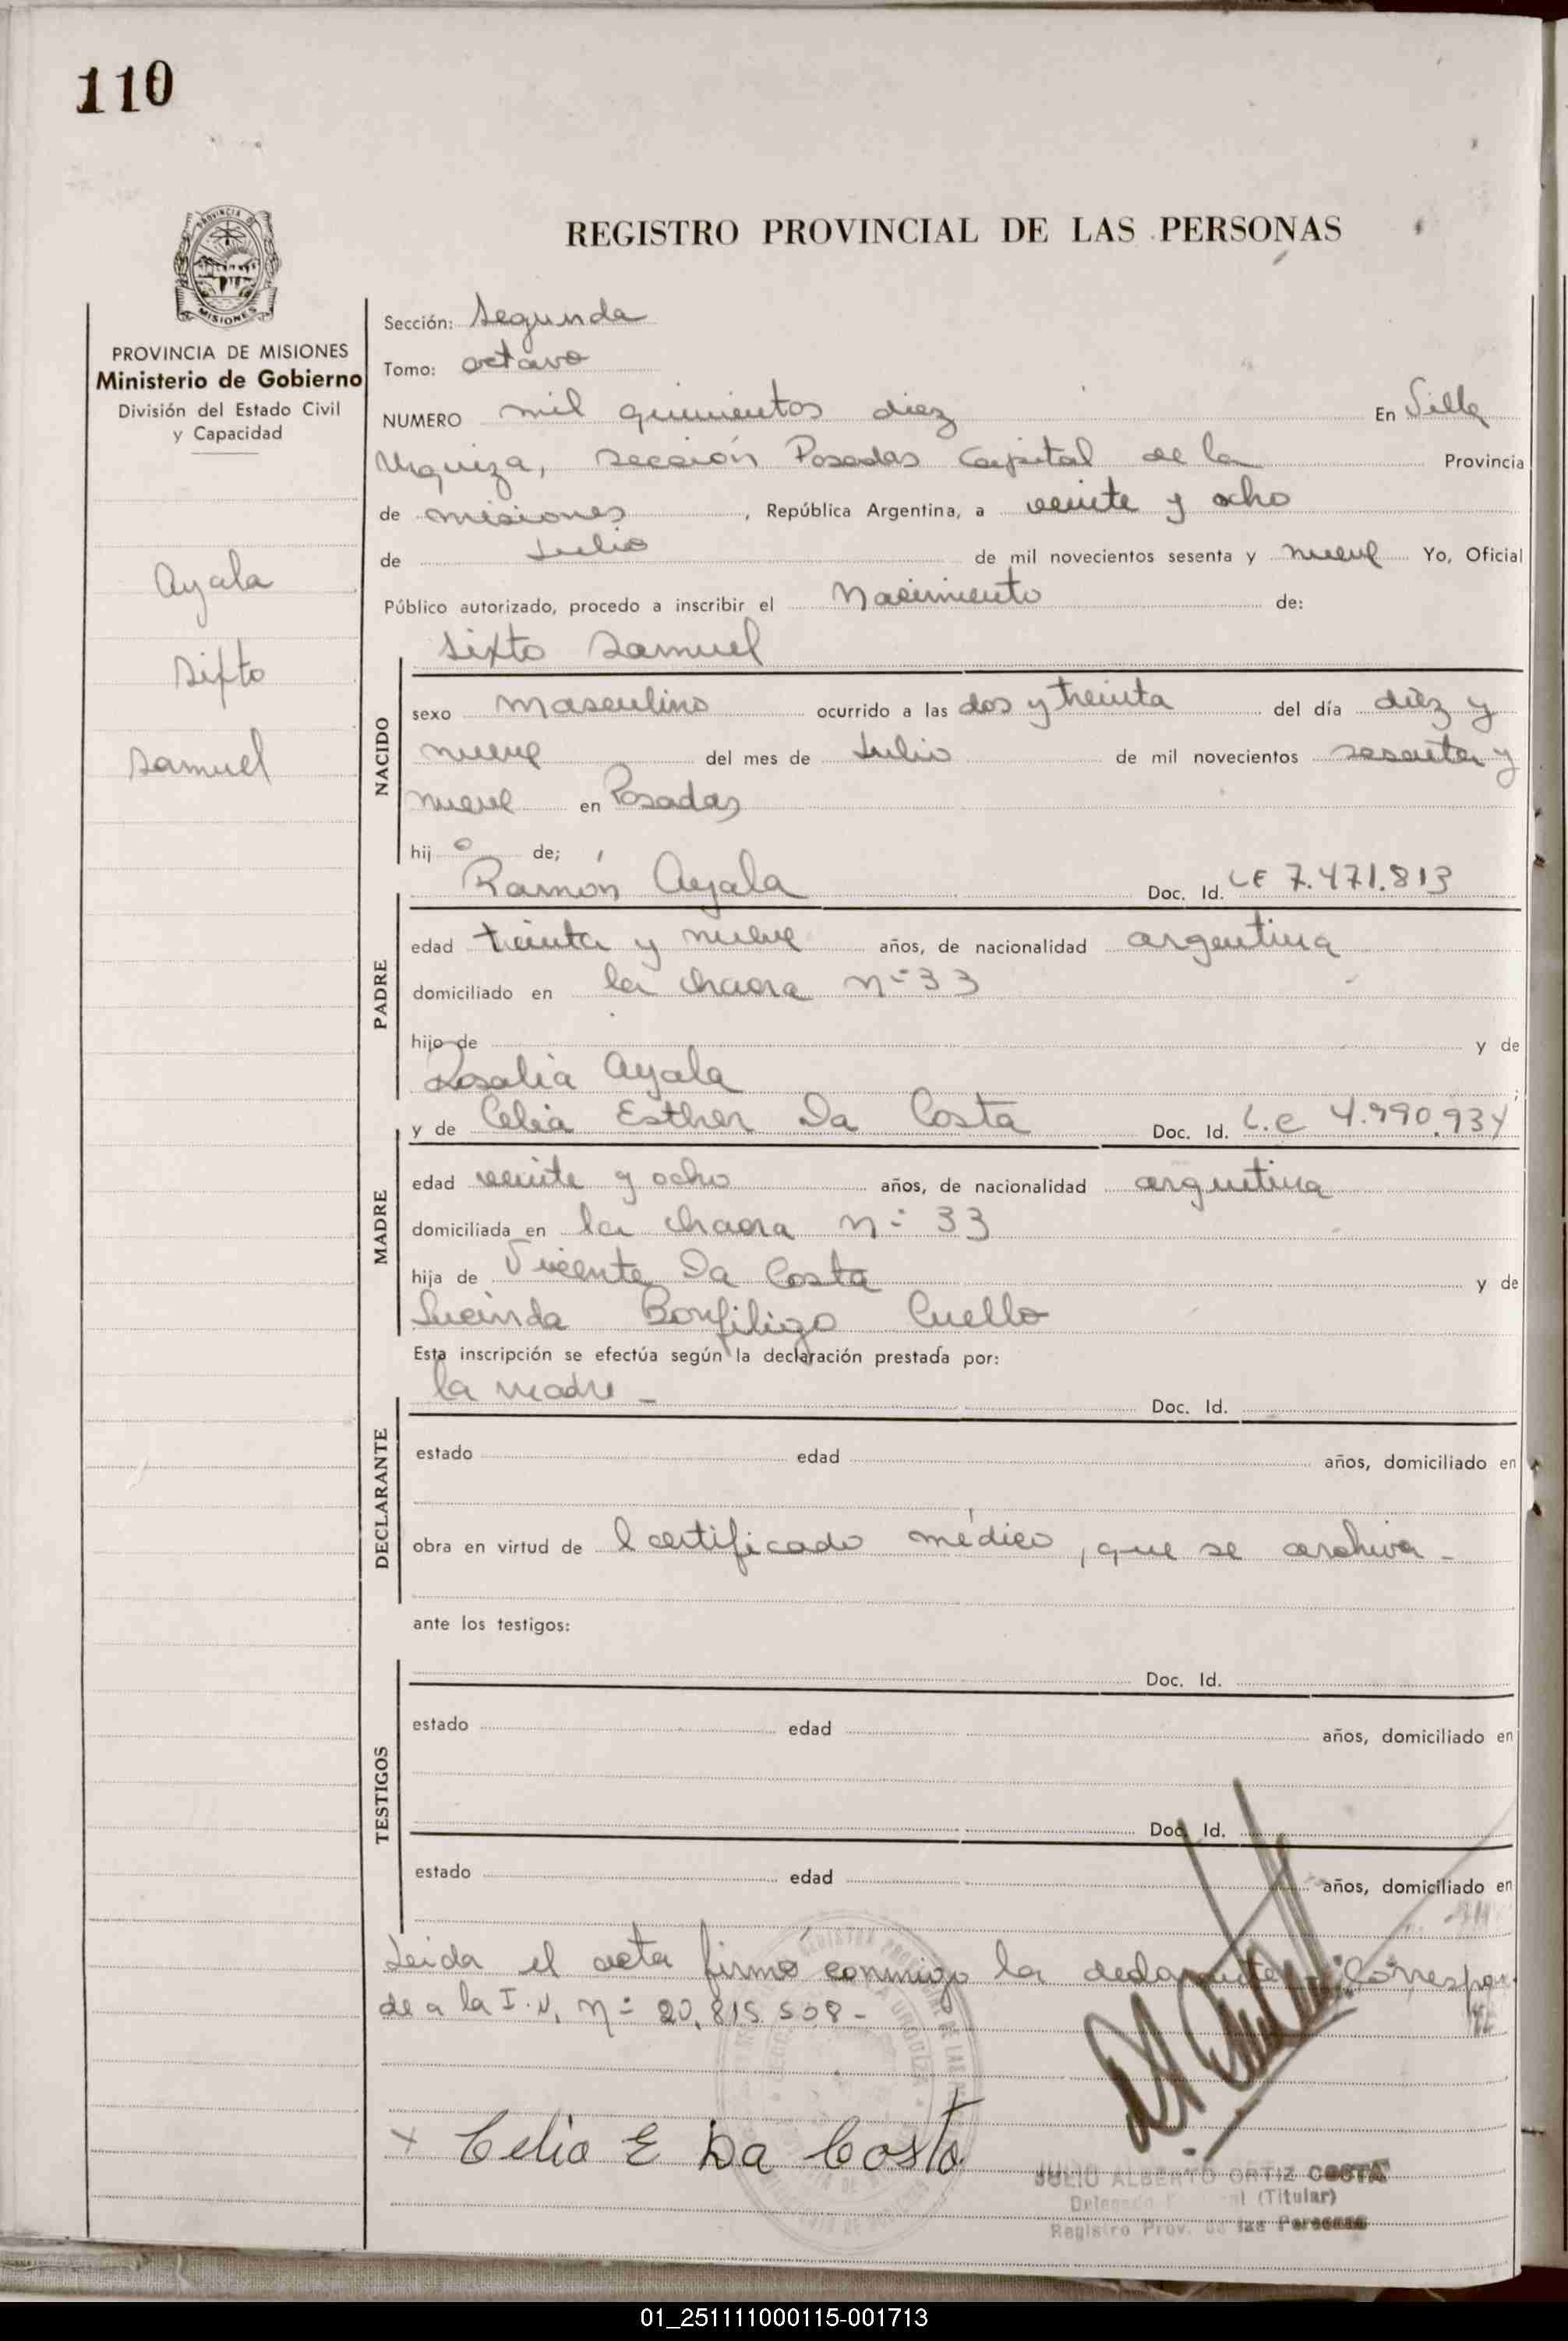 110
PROVINCIA DE MISIONES
Ministerio de Gobierno
División del Estado Civil
y Capacidad
Ayala
Sixto
Samuel
REGISTRO PROVINCIAL DE LAS PERSONAS
Sección: Segunda
Tomo: octavo
NUMERO mil quinientos diez En Villa
Urquiza, sección Posadas Capital de la Provincia
de misiones, República Argentina, a veinte y ocho
de Julio de mil novecientos sesenta y nueve Yo, Oficial
Público autorizado, procedo a inscribir el Nacimiento de:
Sixto Samuel
NACIDO
sexo masculino ocurrido a las dos y treinta del día diez y
nueve del mes de Julio de mil novecientos sesenta y
nueve en Posadas
hijo de;
Ramón Ayala Doc. Id. LE 7.471.813
PADRE
edad treinta y nueve años, de nacionalidad argentina
domiciliado en la chacra nº 33
hijo de y de
Rosalia Ayala
y de Celia Esther Da Costa Doc. Id. L.C 4.990.934
MADRE
edad veinte y ocho años, de nacionalidad argentina
domiciliada en la chacra nº 33
hija de Vicente Da Costa y de
Lucinda Bonfiligo Cuello
Esta inscripción se efectúa según la declaración prestada por:
la madre -
Doc. Id.
DECLARANTE
estado edad años, domiciliado en
obra en virtud de l certificado médico, que se archiva -
ante los testigos:
TESTIGOS
Doc. Id.
estado edad años, domiciliado en
Doc. Id.
estado edad años, domiciliado en
Leida el acta firmó conmigo la declarante. Correspon
de a la I.N. nº 20.815.508 -
x Celia E Da Costa
JULIO ALBERTO ORTIZ COSTA
(Titular)
Registro Prov. de las Personas
01_251111000115-001713